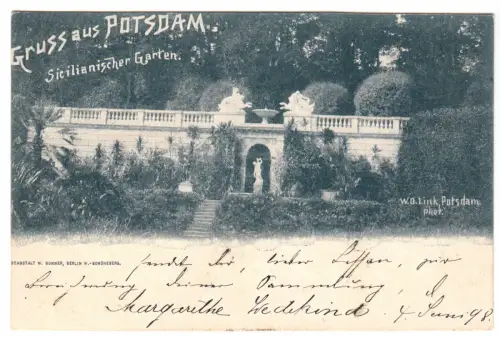 Gruss aus POTSDAM.
Sicilianischer Garten.
W.O. Link, Potsdam
phot.
W. SOMMER, BERLIN W.-SCHÖNEBERG.
sendet dir, lieber für
Bereicherung deiner Sammlung, d.
Margarethe Wedekind. 4 Juni 98.